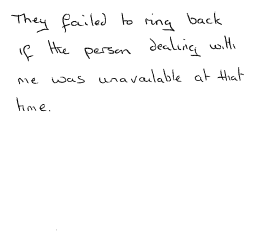 They failed to ring back
if the person dealing with
me was unavailable at that
time.